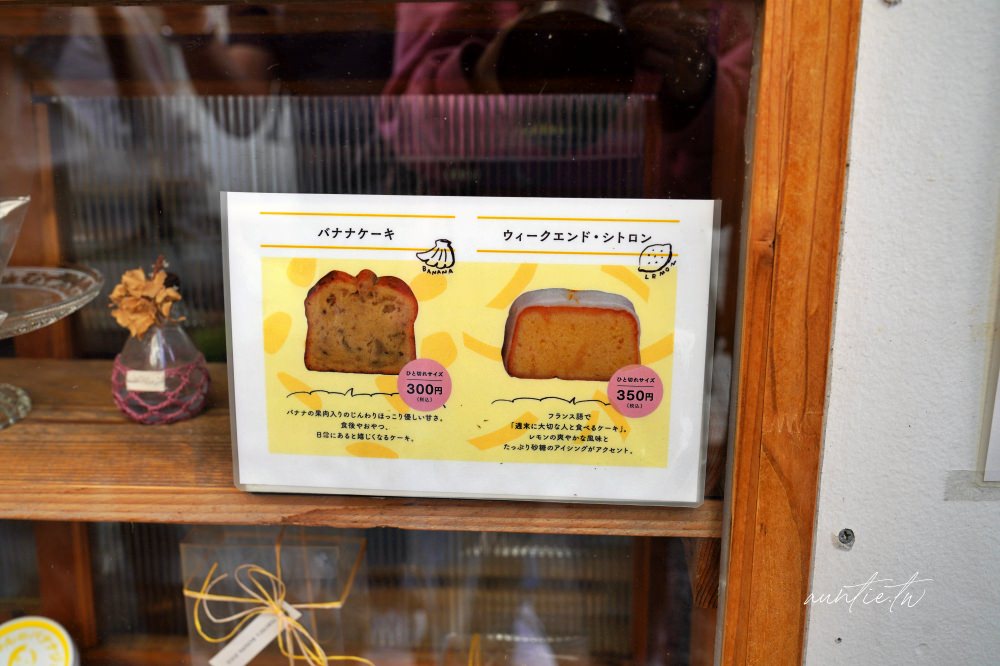 バナナケーキ
BANANA
ひと切れサイズ
300円
(税込)
バナナの果肉入りのじんわりほっこり優しい甘さ。
食後やおやつ、
日常にあると嬉しくなるケーキ。
ウィークエンド・シトロン
LEMON
ひと切れサイズ
350円
(税込)
フランス語で
「週末に大切な人と食べるケーキ」。
レモンの爽やかな風味と
たっぷり砂糖のアイシングがアクセント。
auntie.tw